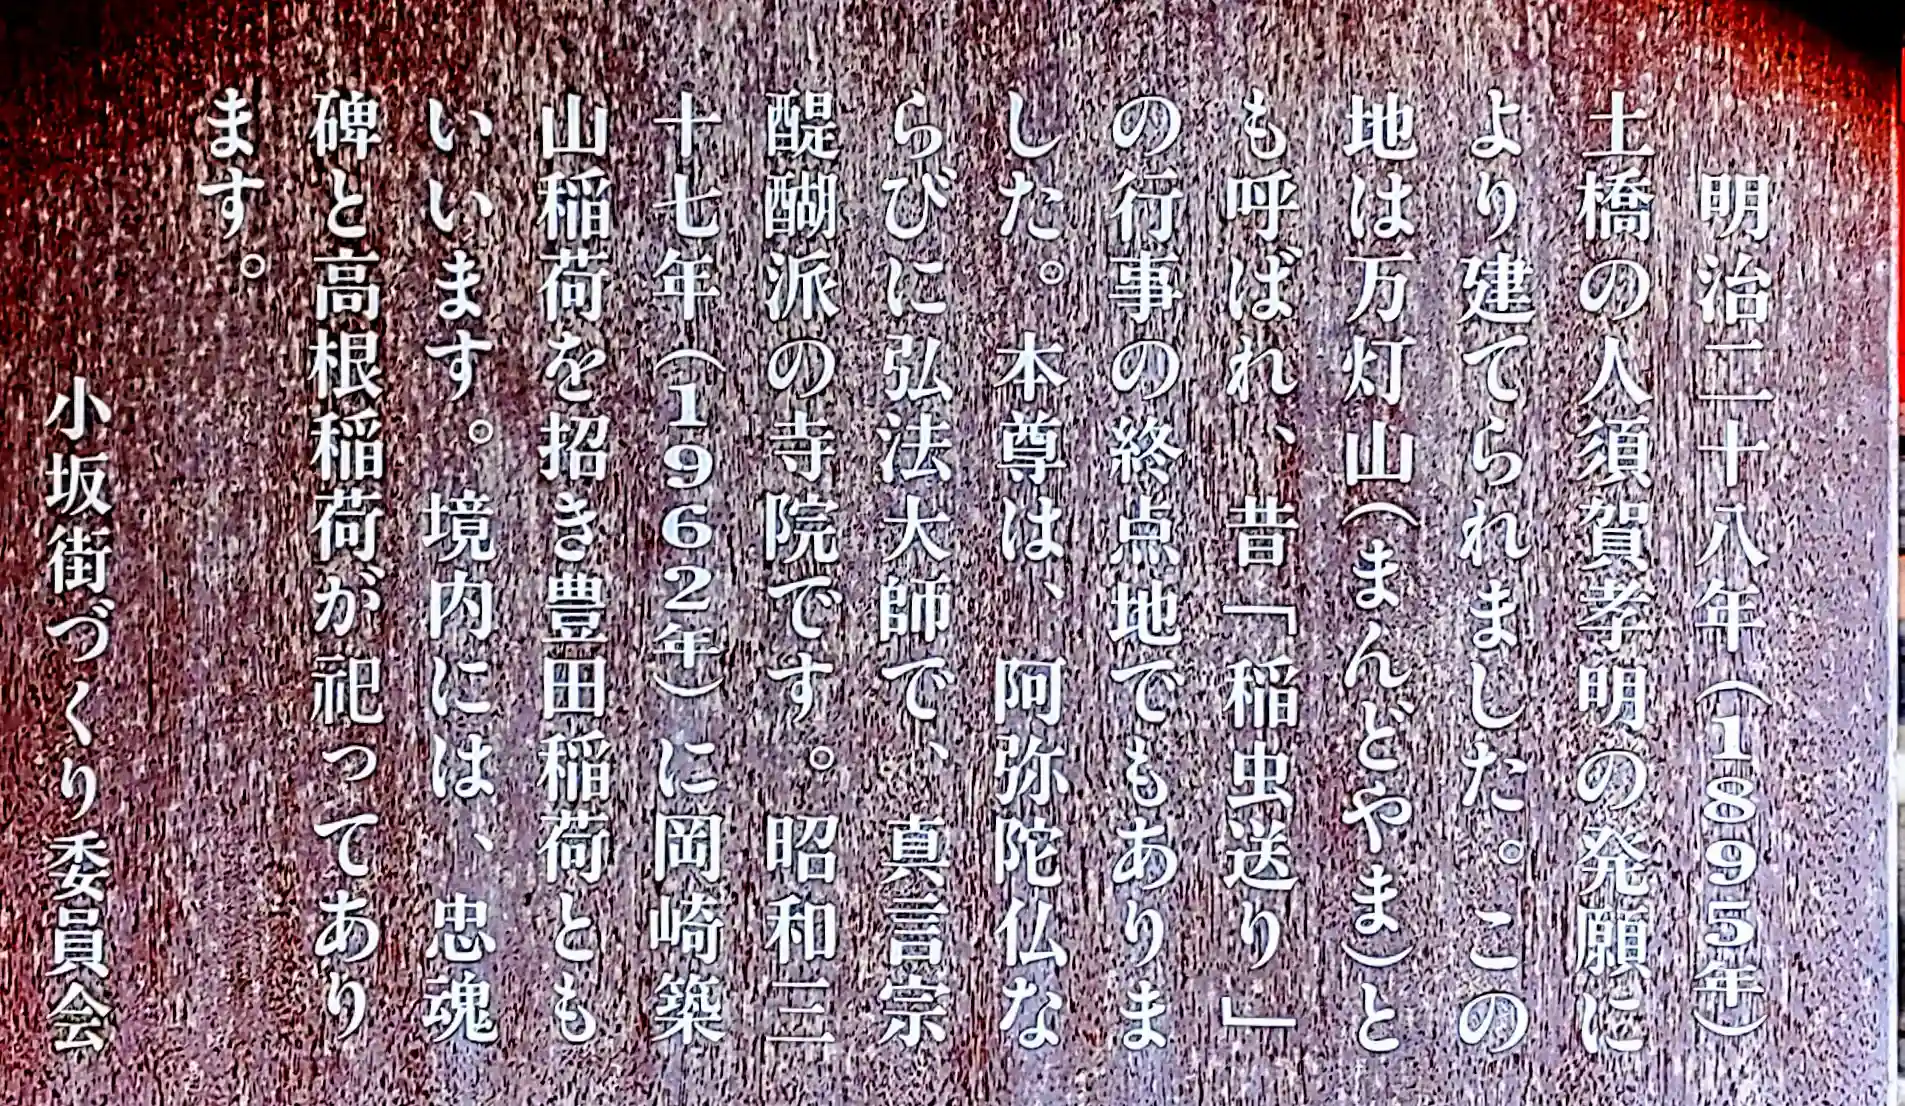 明治二十八年(1895年)
土橋の人須賀孝明の発願に
より建てられました。この
地は万灯山(まんどやま)と
も呼ばれ、昔「稲虫送り」
の行事の終点地でもありま
した。本尊は、阿弥陀仏な
らびに弘法大師で、真言宗
醍醐派の寺院です。昭和三
十七年(1962年)に岡崎築
山稲荷を招き豊田稲荷とも
いいます。境内には、忠魂
碑と高根稲荷が祀ってあり
ます。
小坂街づくり委員会